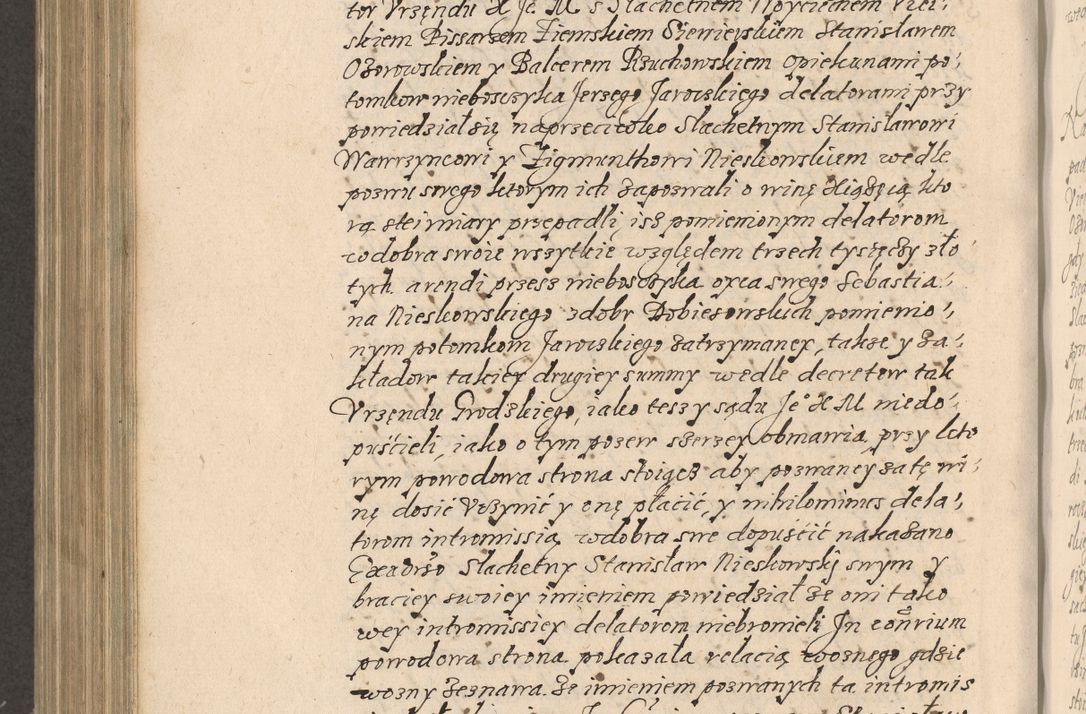 tor Vrzędu X Je° M s Slachetnem Woyciechem
skiem Pissarzem Ziemskiem Siewierskiem Stanisławem
Ożorowskiem y Balcerem Rzuchowskiem opiekunami po⸗
tomkow nieboszczyka Jerzego Jarockiego delatorami przy
powiedział się naprzeciwko Slachetnym Stanisławowi
Wawrzyncowi y Zigmunthowi Nieskowskiem wedle
pozwu swego ktorym ich zapozwali o winę Xiążęcą kto
rą steiymiary przepadli, isz pomienionym delatorom
wdobra swoie wszytkie względem trzech tyszęczy zło⸗
tych arendi przesz nieboszczyka oyca swego Sebastia⸗
na Nieskowskiego zdobr Dobiesowskich pomienio⸗
nym potomkom Jarockiego zatrzymaney, także y za⸗
kładow takiey drugiey summy wedle decretow tak
Vrzędu Grodzkiego, iako teszy sądu Je° X M niedo⸗
puścieli, iako o tym pozew szerzey obmawia, przy kto
rym powodowa strona stoięcz aby pozwaney za tę wi⸗
nę dosić Vczynić y onę płacić, y nihilominus dela⸗
torom intromissią wdobra swe dopuścić nakazano
Exadrso Slachetny Stanisław Nieskowskj swym y
braciey swoiey imieniem powiedział że oni tako
wey intromissiey delatorom niebronieli Jn conrium
powodowa strona pokazała relacią woznego gdzie
wozny zeznawa że imieniem pozwanych ta intromis